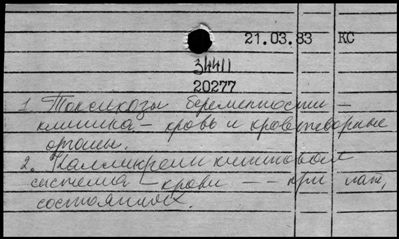 21.03.83 КС
34411
20277
1. Токсикозы беременности -
клиника - кровь и кроветворные
органы.
2. Калликреин кининовая
система - крови - - при пат,
состояниях.